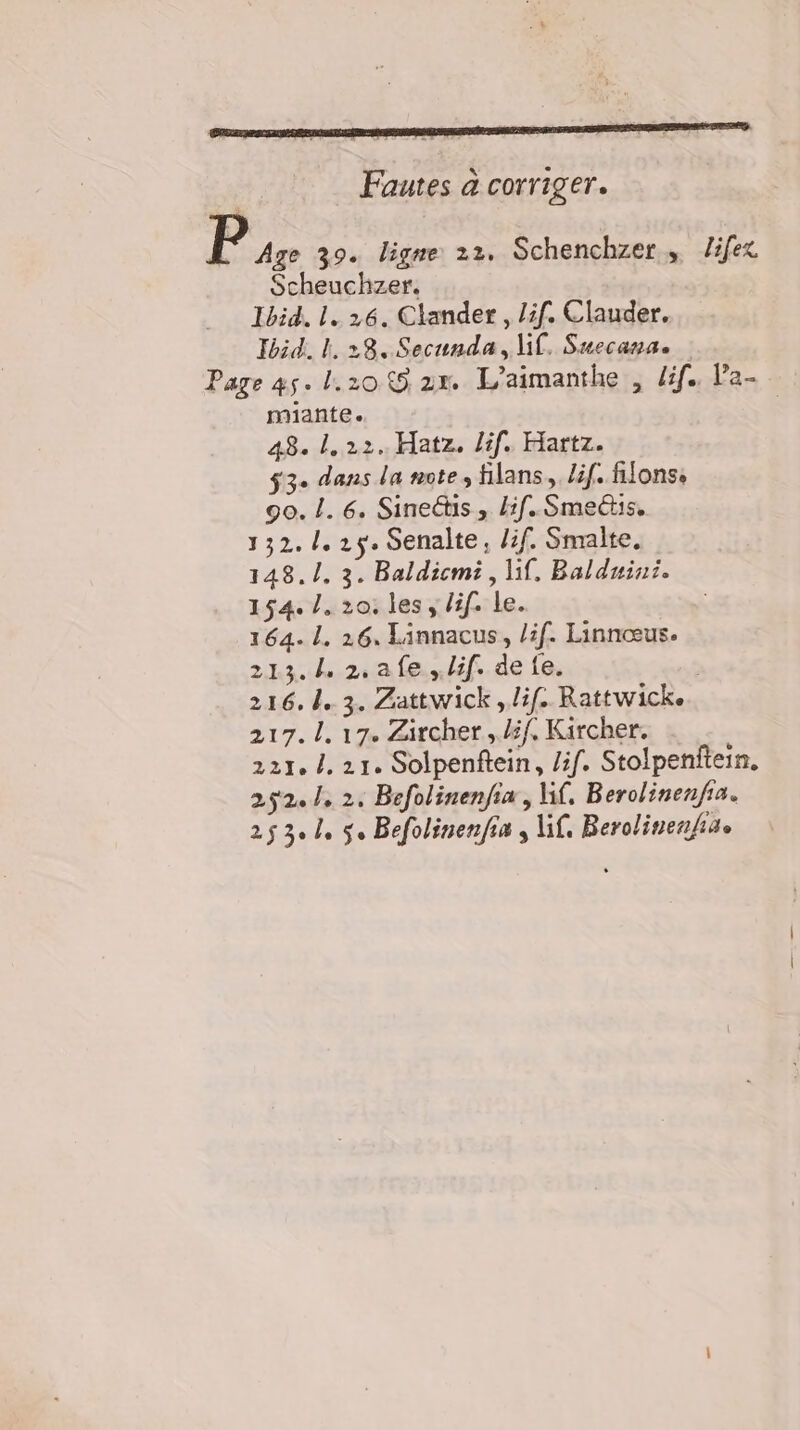 Fautes à corriger.
PAge 39. ligne 22. Schenchzer, liſez
Scheuchzer.
Ibid. l. 26. Clander, liſ. Clauder.
Ibid. l. 28. Secunda, liſ. Suecana.
Page 45. l. 20 & 21. L'aimanthe, liſ. l'a-
miante.
48. l. 22. Hatz. liſ. Hartz.
53. dans la note, filans, liſ. filons.
90. l. 6. Sinectis, liſ. Smectis.
132. l. 25. Senalte, liſ. Smalte.
148. l. 3. Baldicmi, liſ. Balduini.
154. l. 20. les, liſ. le.
164. l. 26. Linnacus, liſ. Linnœus.
213. l. 2. a ſe, liſ. de ſe.
216. l. 3. Zattwick, liſ. Rattwick.
217. l. 17. Zircher, liſ. Kircher.
221. l. 21. Solpenſtein, liſ. Stolpenſtein.
252. l. 2. Beſolinenſia, liſ. Berolinenſia.
253. l. 5. Beſolinenſia, liſ. Berolinenſia.